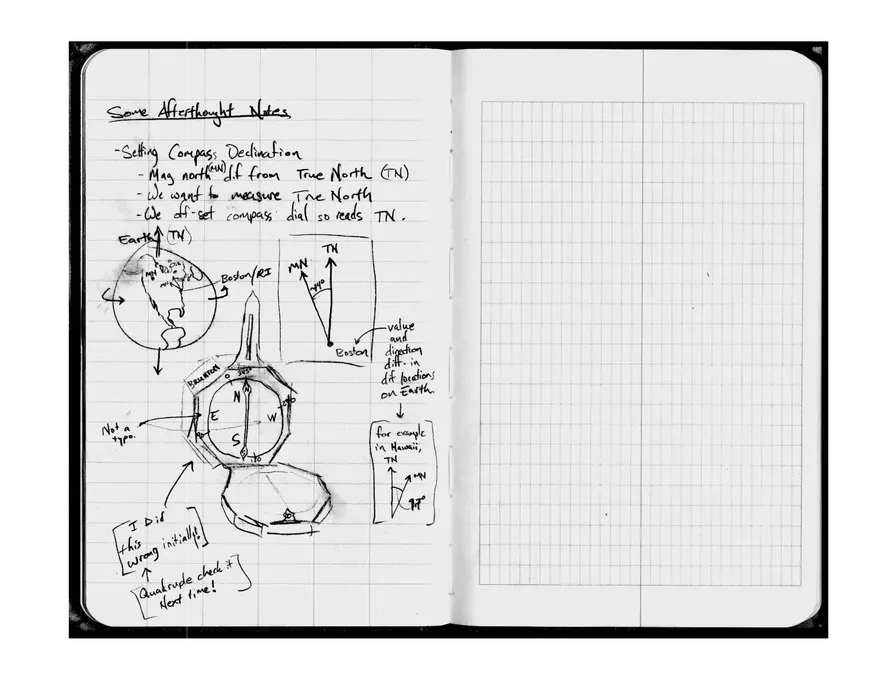 Some Afterthought Notes
- Setting Compass Declination
- Mag north (MN) dif from True North (TN)
- We want to measure True North
- We off-set compass dial so reads TN.
Earth (TN)
MN
Boston/RI
MN
TN
~14°
Boston
value
and
direction
diff. in
dif locations
on Earth.
for example
in Hawaii,
TN
MN
BRUNTON
0
345°
N
E
W
S
90
270
Not a
typo.
I Did
this
wrong initially!
Quadruple check it
Next time!